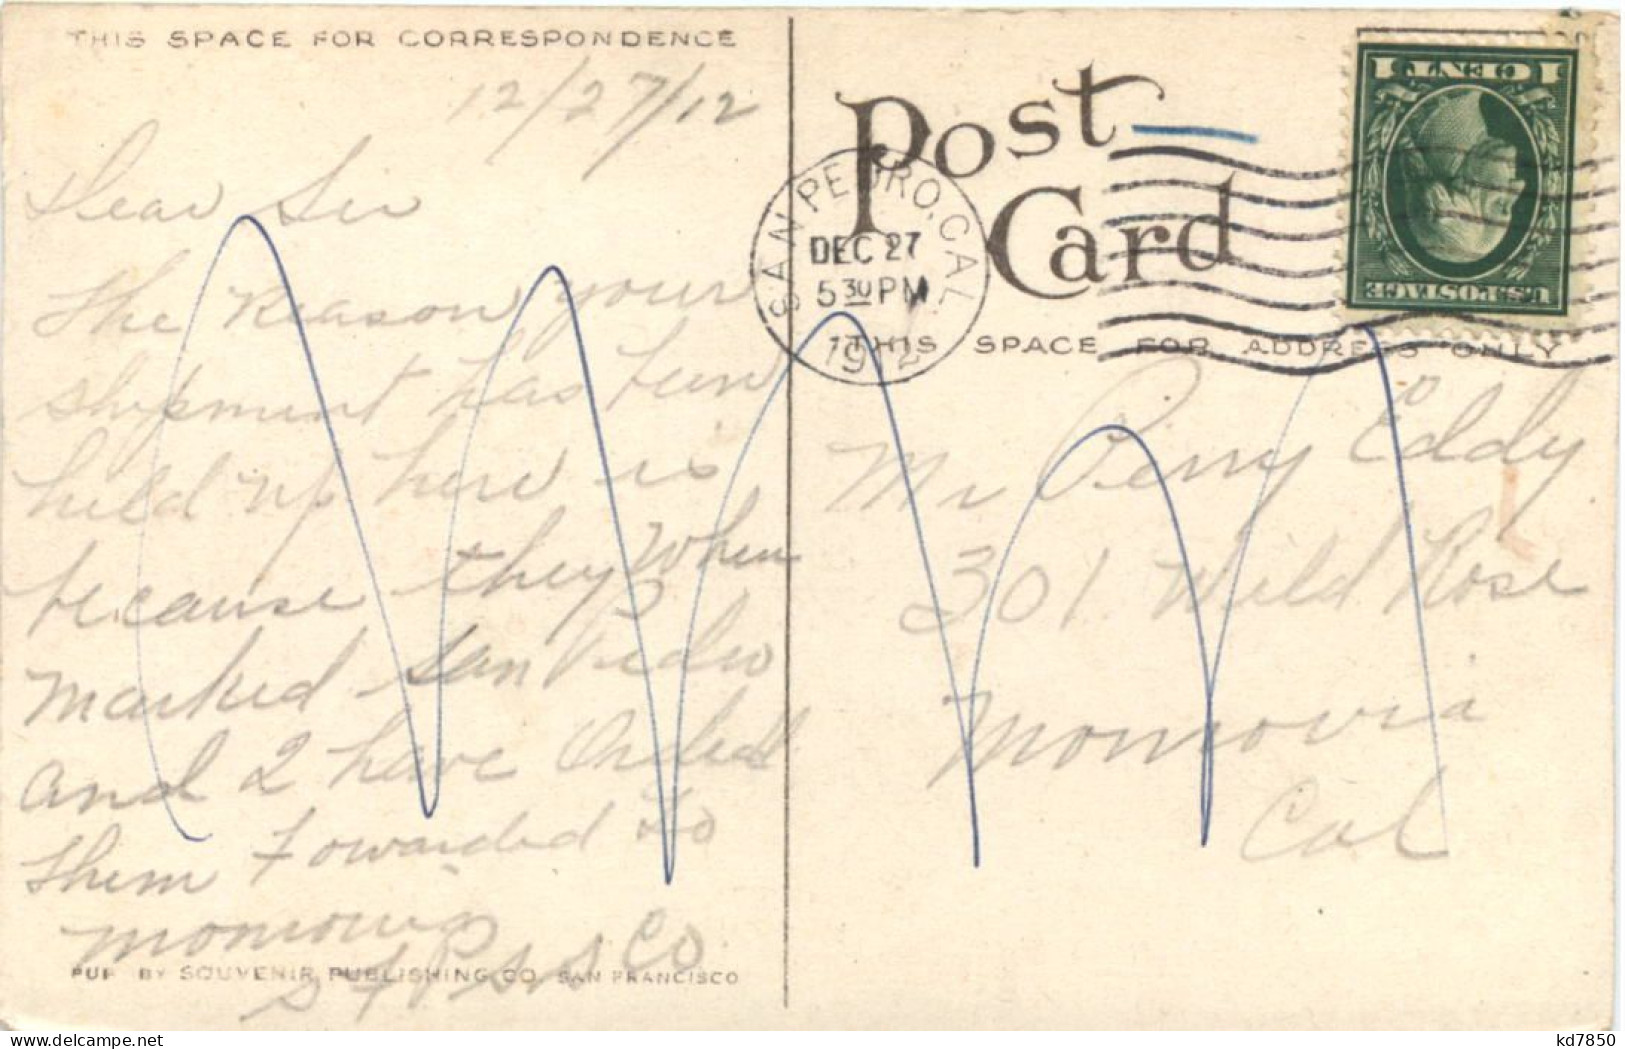 THIS SPACE FOR CORRESPONDENCE
12/27/12
Dear Sir
the Reason your
shipment has been
held up here is
because they when
marked San Pedro
and I have Orded
them Fowarded to
monrovia
S F P S S Co
PUB BY SOUVENIR PUBLISHING CO SAN FRANCISCO
Post Card
SAN PEDRO, CAL.
DEC 27
5 30 PM
1912
1 CENT 1
U.S. POSTAGE
THIS SPACE FOR ADDRESS ONLY
Mr Perry Eddy
301 Wild Rose
Monrovia
Cal
www.delcampe.net
kd7850